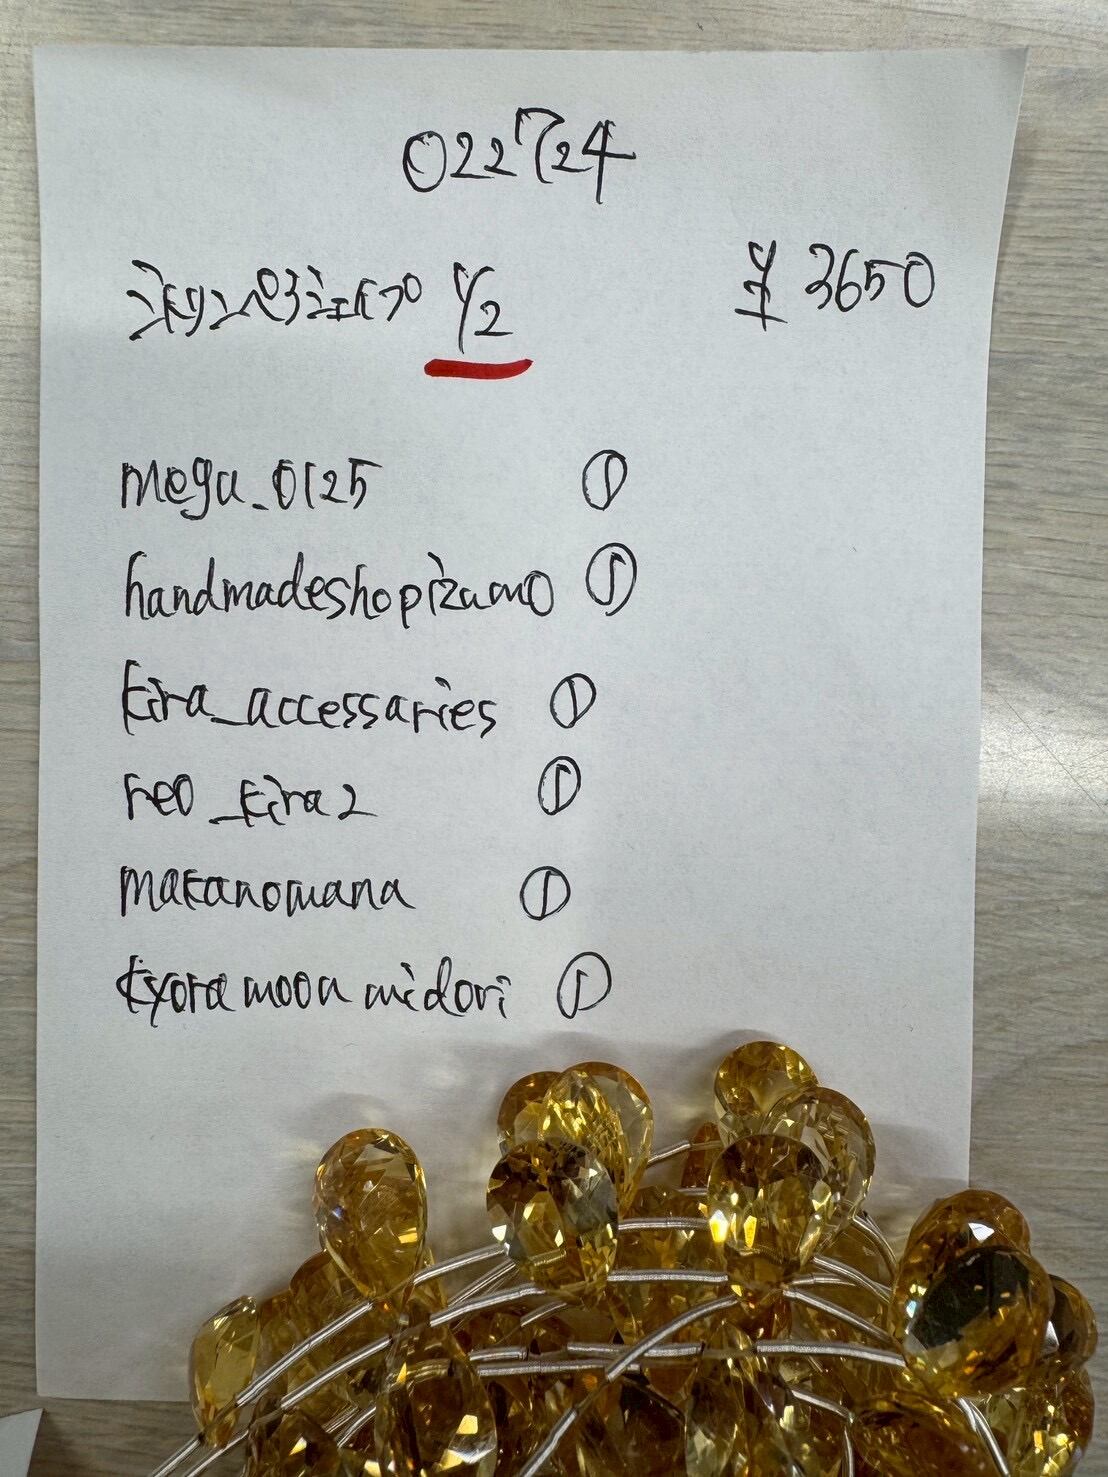 022724
シトリンペアシェイプ 1/2 ¥3650
mega_0125 ①
handmadeshopizumo ①
kira_accessaries ①
reo_kira2 ①
makanomana ①
kyoramoonmidori ①